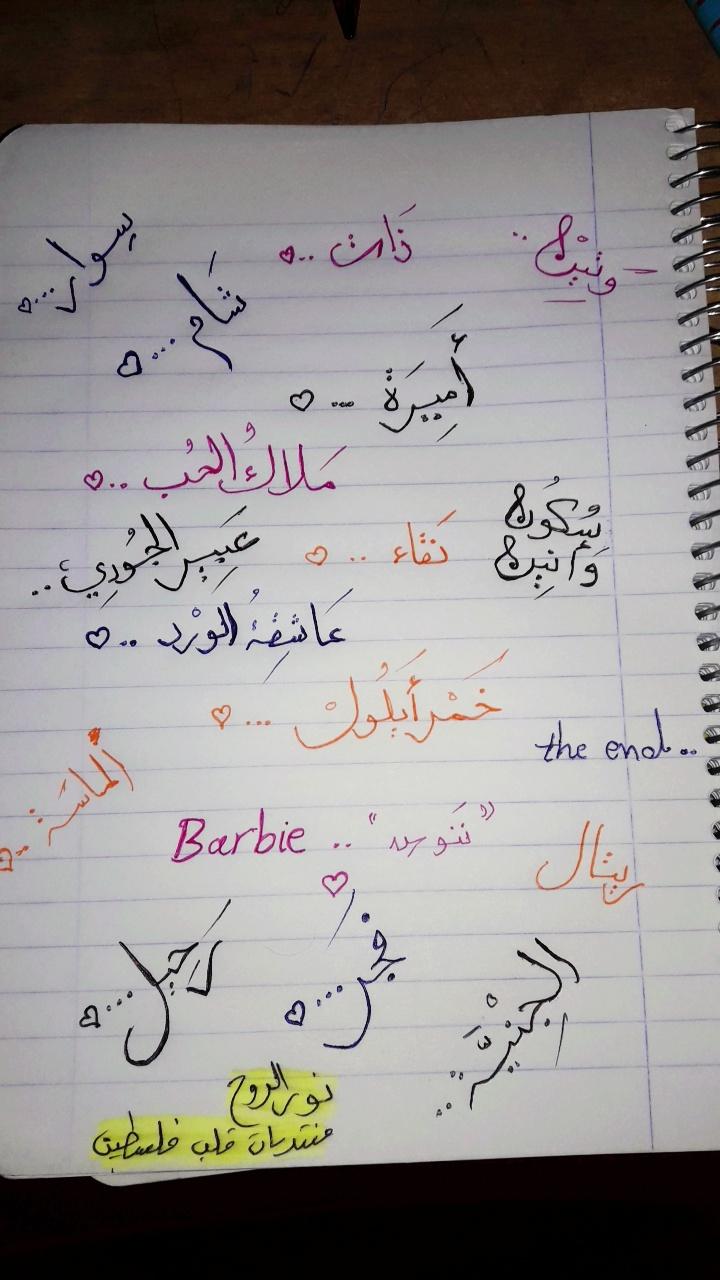 ونين ..
ذات ..
سوار ...
شام ...
أَمِيرَة ...
مَلاكُ الحُب ..
سُكُون
وَأَنِين
نَقَاء ..
عَبِير الجُورِي ..
عَاشِقةُ الوَرْد ..
خَمْر أَيلُول ...
the end ..
ألماسَة ..
Barbie .. "نَنوس"
ريتال
رَحيل ...
فجر ...
الجْنيَّة ...
نور الروح
منتديات قلب فلسطين